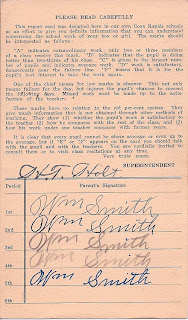 PLEASE READ CAREFULLY
This report card was designed here in our own Coon Rapids schools in
an effort to give you definite information that you can understand
concerning the school work of your boy or girl. The marks should
be interpreted:
"A" indicates extraordinary work, only two or three members
of a class receive this mark. "B" indicates that the pupil is doing
better than two-thirds of his class. "C" is given to the largest number
of pupils and indicates average work. "D" work is unsatisfactory,
dangerously near the failure line.
pupil's best interest to take the work again.
One of the chief causes for low marks is absence. This not only
means failure for the day, but injures the pupil's chances to succeed
the following days. Missed work must be made up to the satisfaction
of the teachers.
These marks have no relation to the old per-cent system. They
give much information that is not obtained through other methods of
marking. They show (1) whether the pupil's work is satisfactory to
the teacher, (2) how he compares with the rest of the class, and (3)
how his work under one teacher compares with former years.
It is clear that every pupil cannot be above average or even up to
the average, but if "E" or "F" appears on the card you should talk
with the pupil and with the teachers. You are cordially invited to
consult them or to visit class recitations at any time.
Very truly yours,
H.G. Holt SUPERINTENDENT
Period Parent's Signature
1st Wm Smith
2nd Wm Smith
3rd Wm Smith
4th Wm Smith
5th Wm Smith
6th